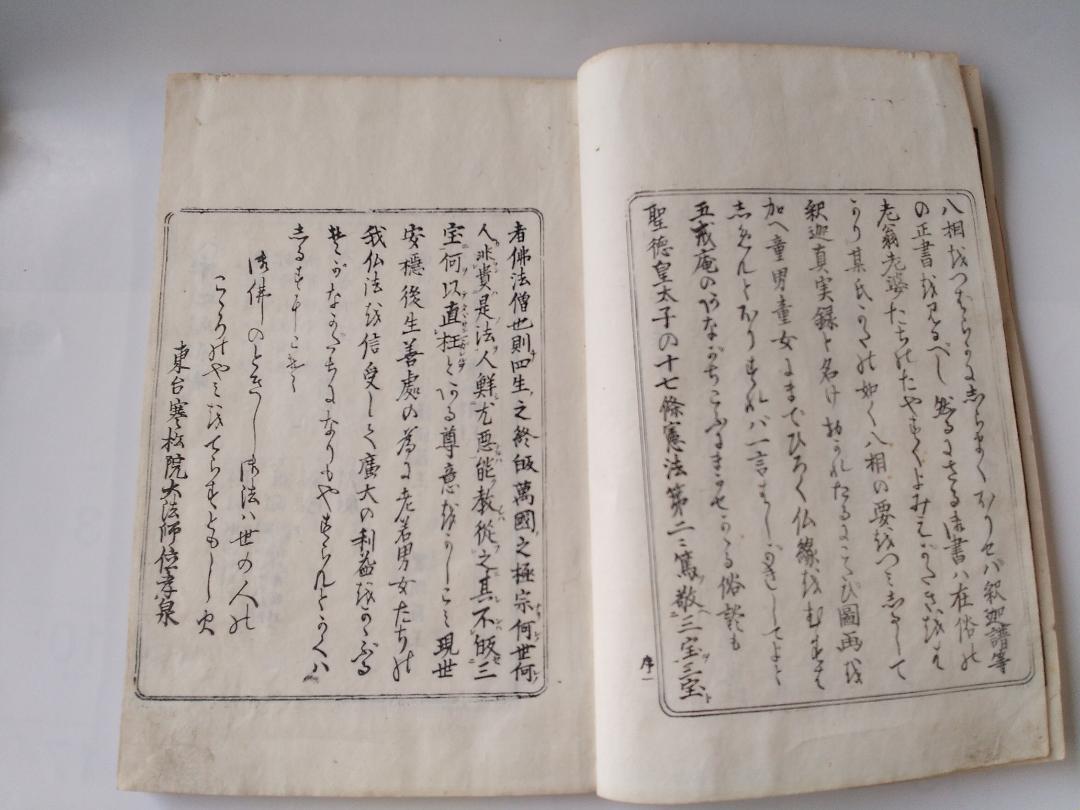 八相をつまびらかにしらまくおりせバ釈迦譜等
の正書を見るべし然るにさる御書ハ在俗の
老翁老婆たちのたやすくよみえがたきをは
かり某氏これの如く八相の要をつミしるして
釈迦真実録と名け おかれたるにこたび圖画を
加へ童男童女にまでひろく仏縁をむすばせ
しめんとおりすれバ一言はしがきしてよと
五戒庵のあながちこふにまかせかゝる俗談も
聖徳皇太子の十七條憲法第二ニ篤敬三宝三宝
序一
者佛法僧也則四生之終皈萬國之極宗何世何
人非貴是法人鮮尤悪能教従之其不皈三
宝何以直枉とある尊意をかしこミ現世
安穏後生善處の為に老若男女たちの
我仏法を信受して廣大の利益をかふる
なかだちにもなりもやすらんとかくハ
しるすになん
御佛のときし御法ハ世の人の
こころのやみをてらすともし火
東台寒松院大法師位孝泉